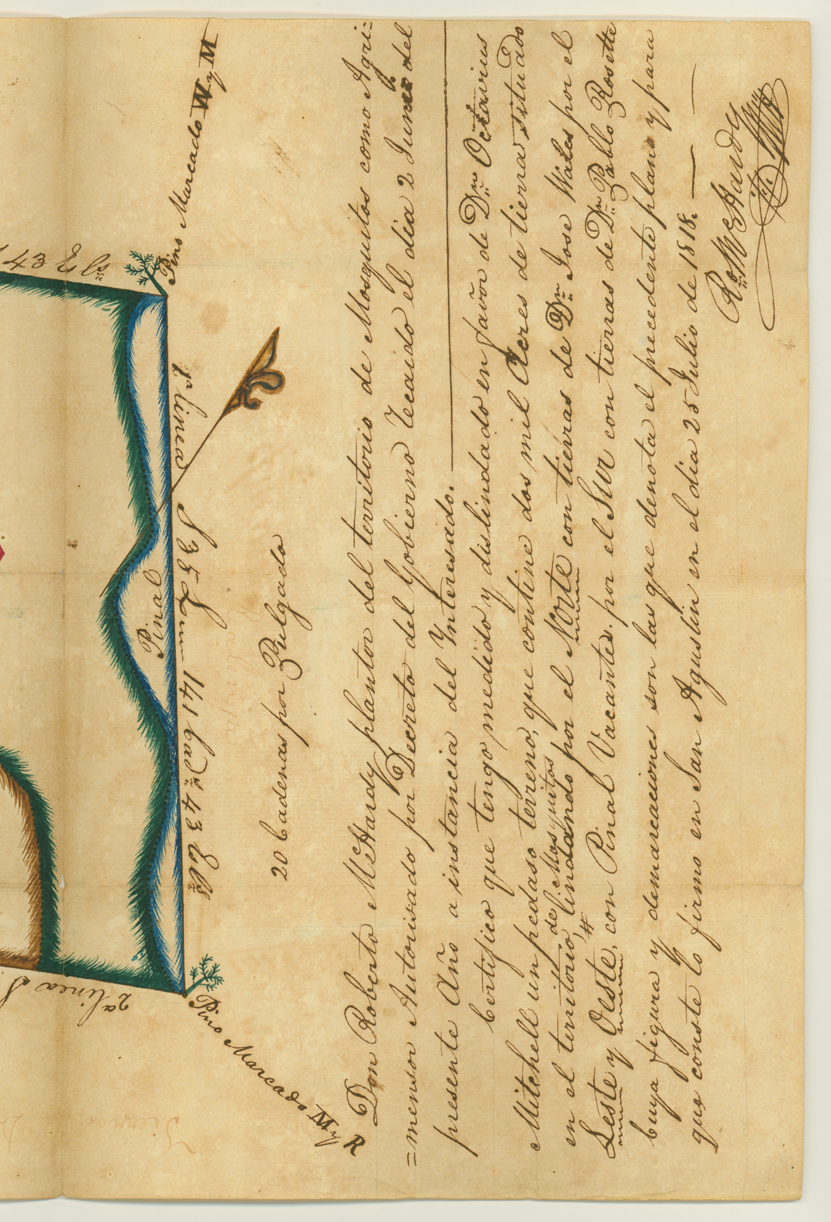 43 Es.
Pino Marcado W y M
1a linea S 35 E 141 Cads 43 Es
Pinal
2a linea S.
Pino Marcado M y R
20 Cadenas por Pulgada
Don Roberto McHardy plantor del territorio de Mosquitos como Agri=
=mensor Autorisado por Decreto del Gobierno Recaido el dia 2 Junio del
presente Año a instancia del Interesado.
Certifico que tengo medido y dislindado en favor de Dn. Octavius
Mitchell un pedaso terreno, que contine dos mil Acres de tierra situado
de Mosquitos
en el territorio, lindando por el Norte con tierras de Dn. Jose Wales por el
Leste y Oeste, con Pinal Vacante. por el Sur con tierras de Dn. Pablo Rosette
Cuya figura y demarcaciones son las que denota el precedente plano y para
que conste lo firmo en San Agustin en el dia 25 Julio de 1818.
Ro. McHardy